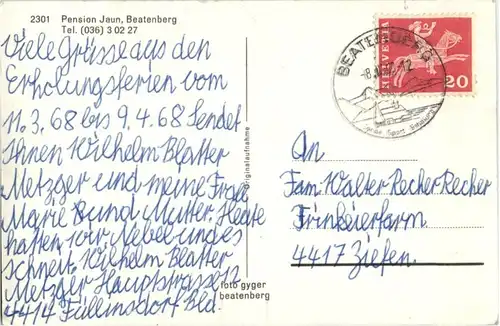 2301 Pension Jaun, Beatenberg
Tel. (036) 3 02 27
Viele Grüsse aus den
Erholungsferien vom
11.3.68 bis 9.4.68 Sendet
Ihnen Wilhelm Blatter
Metzger und meine Frau
Marie und Mutter. Heute
haften wir Nebel und es
schneit. Wilhelm Blatter
Metzger Hauptstrasse 12
4414 Füllinsdorf Bld.
Originalaufnahme
foto gyger
beatenberg
BEATENBERG
HELVETIA
20
An
Fam. Walter Recher Recher
Trinkeierfarm
4417 Ziefen.